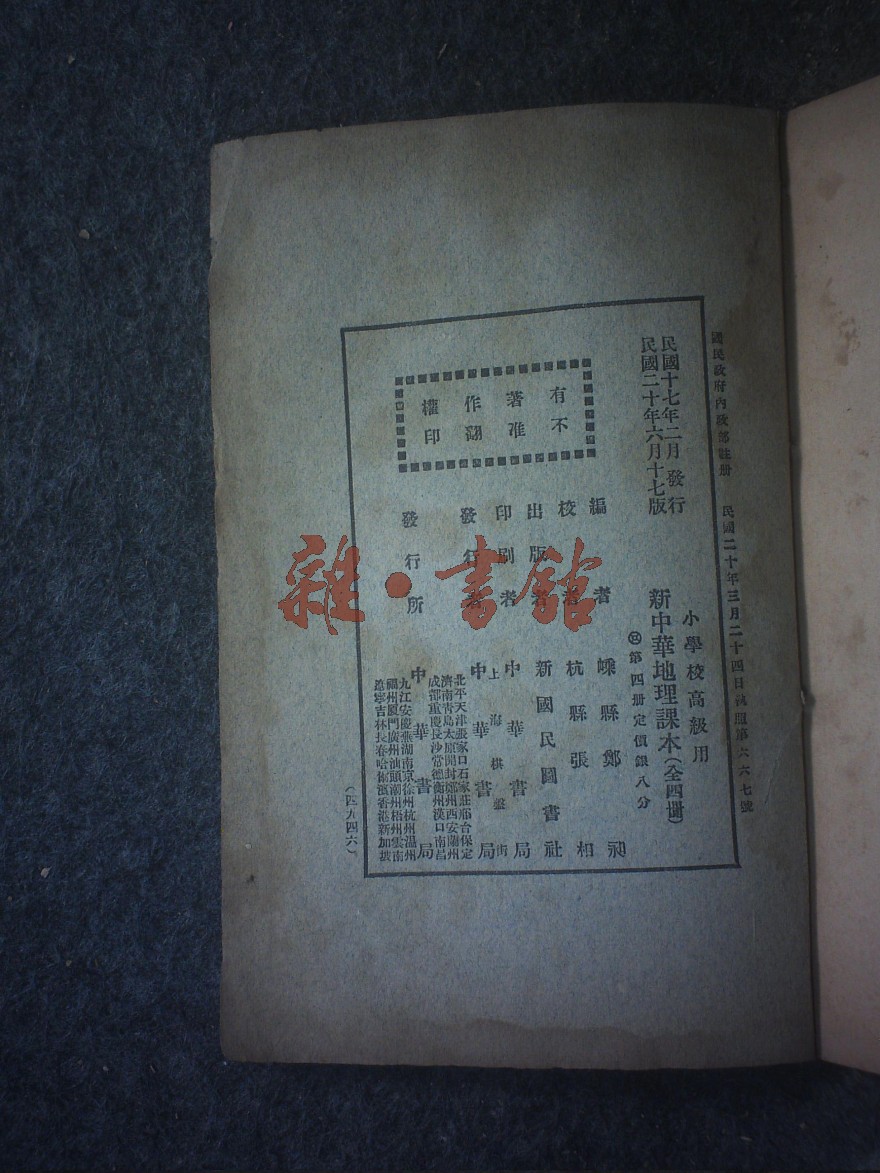 國民政府內政部註册　民國二十年三月二十四日執照第六六七號
民國十七年二月發行
民國二十年六月十七版
小學校高級用
新中華地理課本（全四冊）
第四册定價銀八分
有著作權
不准翻印
編者　嵊縣鄭昶
校者　杭縣張相
出版者　新國民圖書社
印刷者　中華書局
上海棋盤街
發行者　中華書局
發行所　中華書局
北平天津張家口石家莊邢台保定
濟南青島太原開封鄭州西安蘭州
成都重慶長沙常德衡州漢口南昌
九江安慶蕪湖南京徐州杭州温州
福州厦門廣州汕頭潮州梧州雲南
遼寧吉林長春哈爾濱香港新加坡
（四九四六）
雜·書館